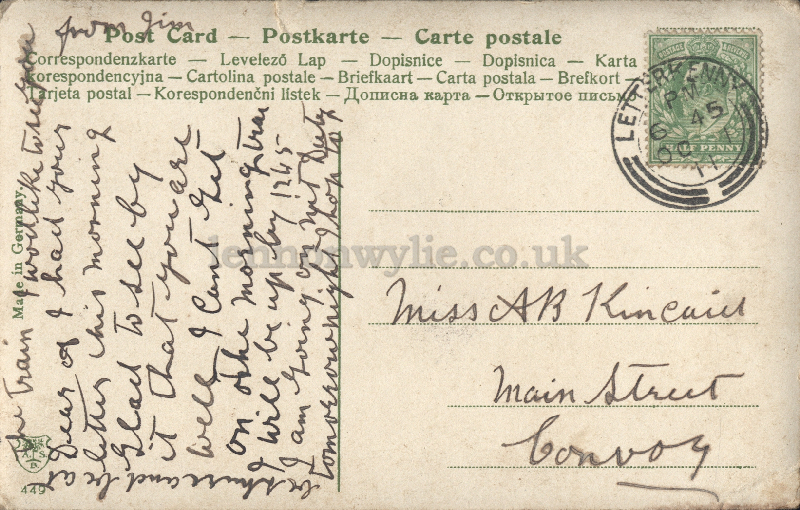 Post Card — Postkarte — Carte postale
Correspondenzkarte — Levelező Lap — Dopisnice — Dopisnica — Karta
Korespondencyjna — Cartolina postale — Briefkaart — Carta postala — Brefkort —
Tarjeta postal — Korespondenční lístek — Дописна карта — Открытое письмо
LETTERKENNY
PM
6 45
11
HALF PENNY
Made in Germany.
449
lennonwylie.co.uk
Miss AB Kincaid
Main Street
Convoy
Dear A I had your
letter this morning
Glad to see by
it that you are
well I cant get
on the morning train
I will be up by 12.45
I am going on nit Duty
tomorrow night I hope
be sure and be at
the train I wod like to see you
from Jim